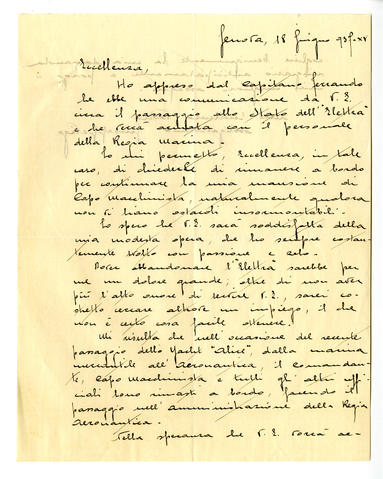 Genova, 18 Giugno 937-XV
Eccellenza,
Ho appreso dal Capitano Ferrando
che ebbe una comunicazione da V. E.
circa il passaggio allo Stato dell'"Elettra"
e che verrà armata con il personale
della Regia Marina.
Io mi permetto, Eccellenza, in tale
caso, di chiederLe di rimanere a bordo
per continuare la mia mansione di
Capo Macchinista, naturalmente qualora
non vi siano ostacoli insormontabili.
Io spero che V. E. sarà soddisfatta della
mia modesta opera, che ho sempre costan-
temente svolto con passione e zelo.
Dover abbandonare l'"Elettra" sarebbe per
me un dolore grande; oltre di non aver
più l'alto onore di servire V. E., sarei co-
stretto cercare altrove un impiego, il che
non è certo cosa facile ottenere.
Mi risulta che nell'occasione del recente
passaggio dello Yacht "Alice", dalla marina
mercantile all'Aeronautica, il comandan-
te, Capo Macchinista e tutti gli altri uffi-
ciali sono rimasti a bordo, facendo il
passaggio nell'amministrazione della Regia
Aeronautica.
Nella speranza che V. E. vorrà ac-